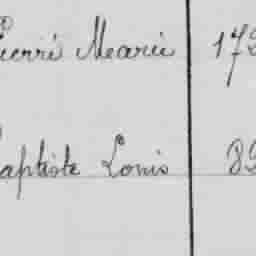 Pierre Marie 172
Baptiste Louis 89